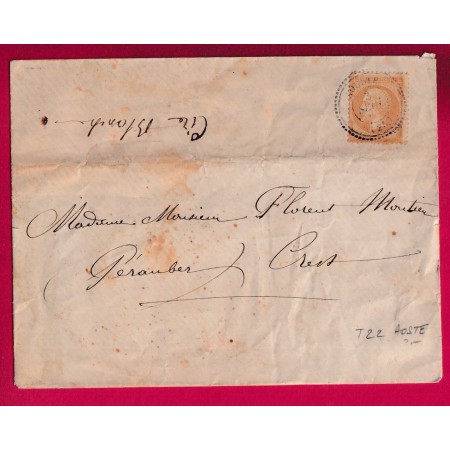 Cire Blanche
Madame Monsieur Florent Moutier
Pérauber
Crest
T22 AOSTE